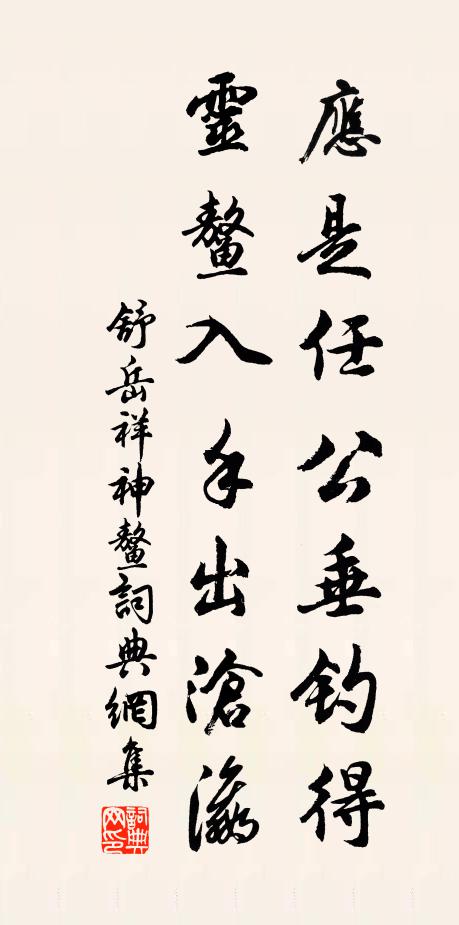 應是任公垂釣得
靈鼇入手出滄瀛
舒岳祥神鼇詞典網集
詞典网印